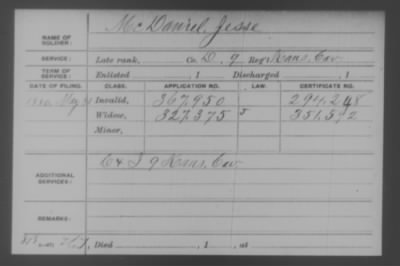 NAME OF SOLDIER: McDaniel, Jesse
SERVICE: Late rank, Co. D, 9 Reg't Kans. Cav.
TERM OF SERVICE: Enlisted , 1 Discharged , 1
DATE OF FILING. CLASS. APPLICATION NO. LAW. CERTIFICATE NO.
May Invalid, 367,950 294,248
Widow, 327,375 351,592
Minor,
ADDITIONAL SERVICES: C & I 9 Kans. Cav.
REMARKS:
Died , 1 , at